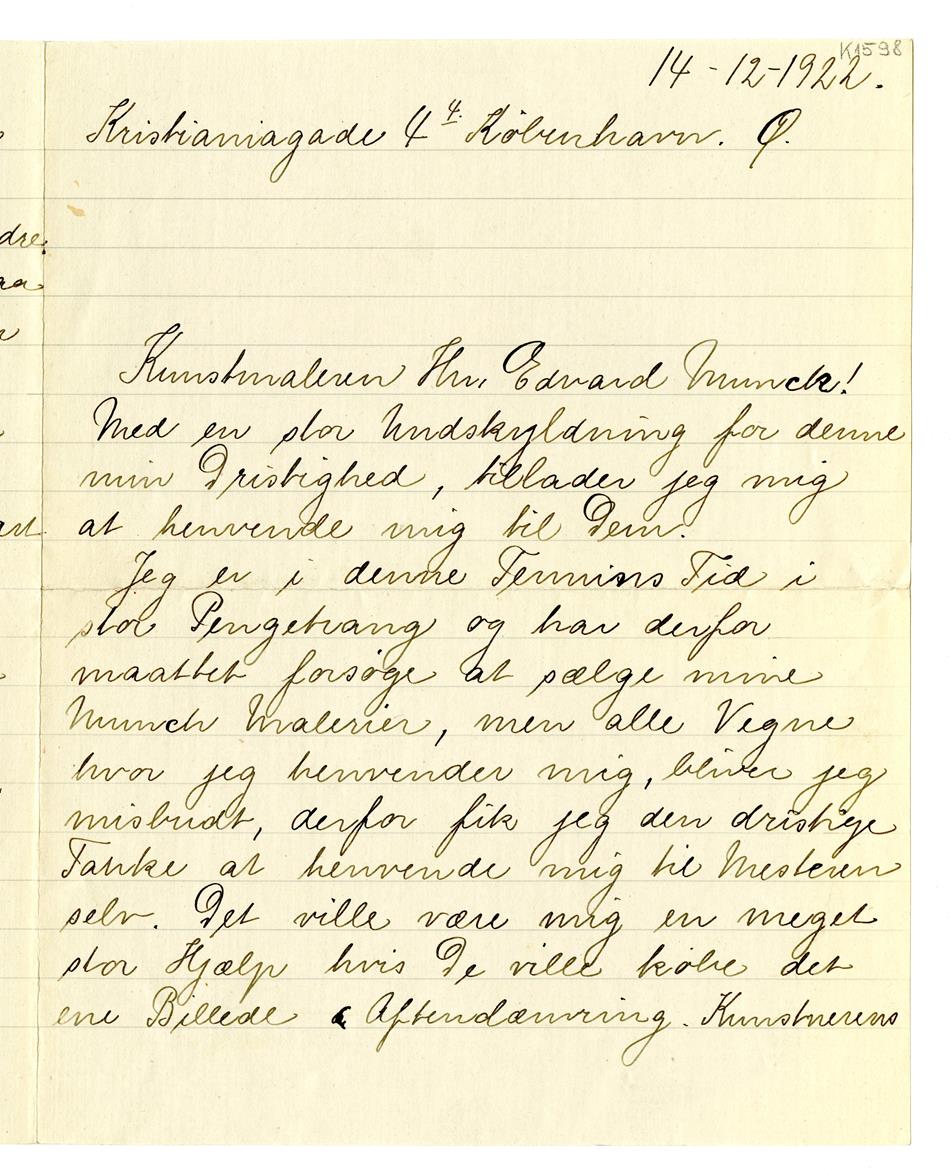 K1598
14-12-1922.
Kristianiagade 4 4. København. Ø.
Kunstmaleren Hr. Edvard Munck!
Med en stor Undskyldning for denne
min Dristighed, tillader jeg mig
at henvende mig til Dem.
Jeg er i denne Termins Tid i
stor Pengetrang og har derfor
maattet forsøge at sælge mine
Munch Malerier, men alle Vegne
hvor jeg henvender mig, bliver jeg
misbudt, derfor fik jeg den dristige
Tanke at henvende mig til Mesteren
selv. Det ville være mig en meget
stor Hjælp hvis De ville købe det
ene Billede Aftendæmring. Kunstnerens